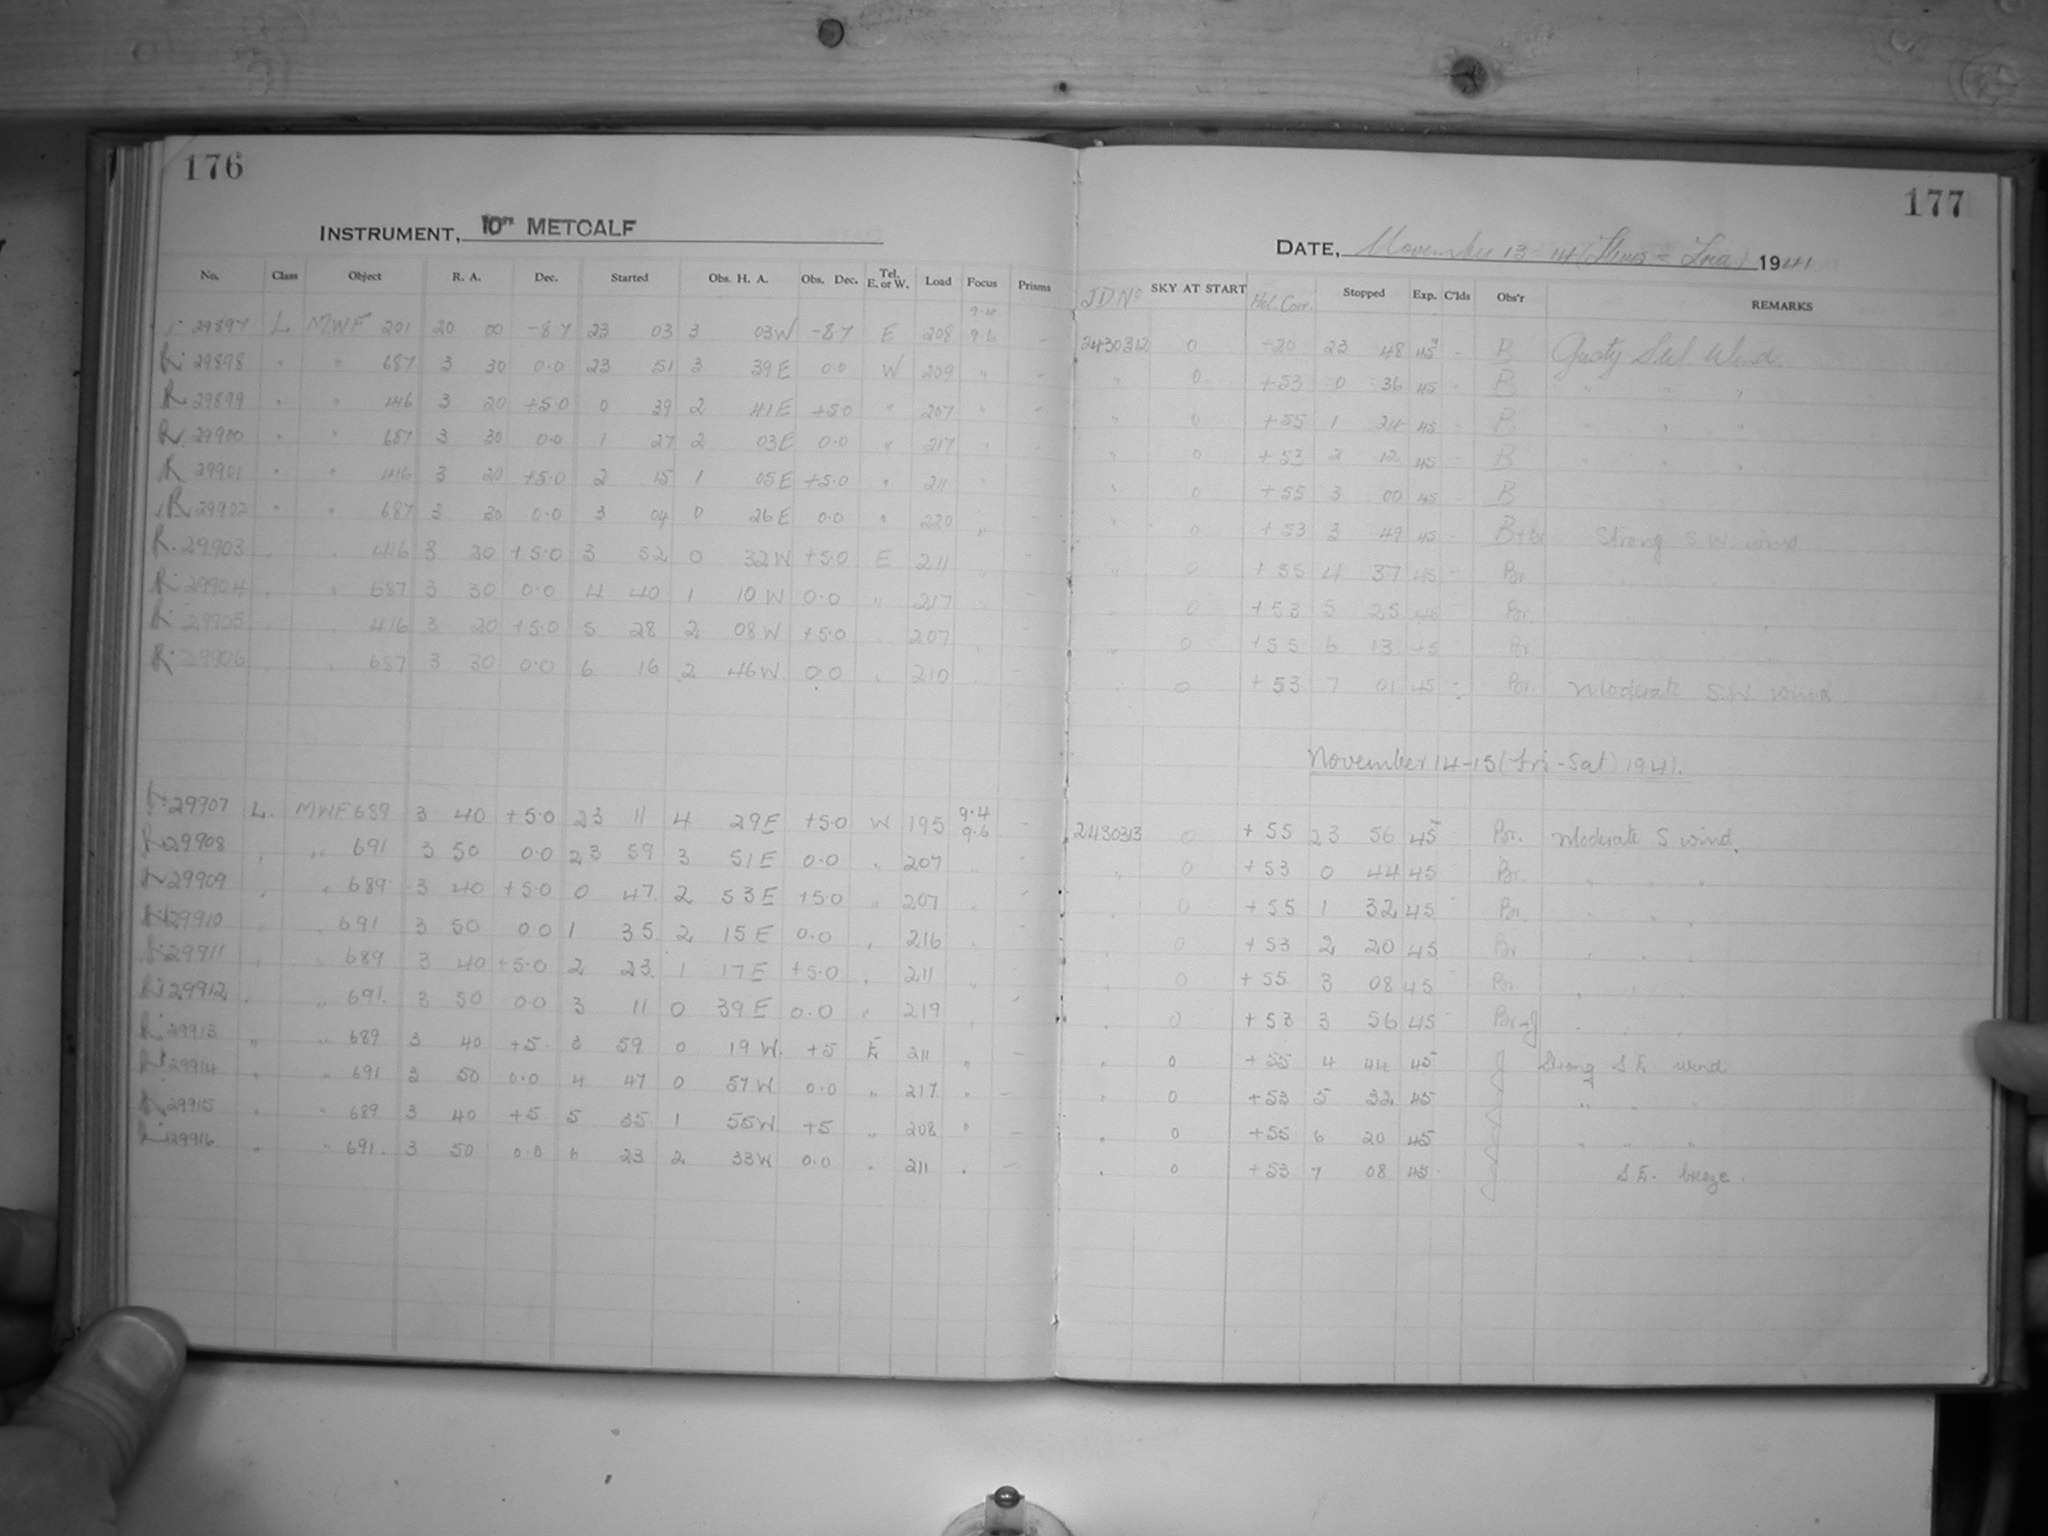 176
INSTRUMENT, 10" METCALF
No. Class Object R. A. Dec. Started Obs. H. A. Obs. Dec. Tel. E. or W. Load Focus Prisms
29897 L MWF 201 20 00 -8.7 23 03 3 03W -8.7 E 208 9.4 9.6 -
R 29898 " " 687 3 30 0.0 23 51 3 39E 0.0 W 209 " -
R 29899 " " 416 3 20 +5.0 0 39 2 41E +5.0 " 207 " -
R 29900 " " 687 3 30 0.0 1 27 2 03E 0.0 " 217 " -
R 29901 " " 416 3 20 +5.0 2 15 1 05E +5.0 " 211 " -
R 29902 " " 687 3 30 0.0 3 04 0 26E 0.0 " 220 " -
R 29903 " " 416 3 20 +5.0 3 52 0 32W +5.0 E 211 " -
R 29904 " " 687 3 30 0.0 4 40 1 10W 0.0 " 217 " -
R 29905 " " 416 3 20 +5.0 5 28 2 08W +5.0 " 207 " -
R 29906 " " 687 3 30 0.0 6 16 2 46W 0.0 " 210 " -
29907 L. MWF 689 3 40 +5.0 23 11 4 29E +5.0 W 195 9.4 9.6 -
29908 " " 691 3 50 0.0 23 59 3 51E 0.0 " 207 " -
29909 " " 689 3 40 +5.0 0 47 2 53E +5.0 " 207 " -
29910 " " 691 3 50 0.0 1 35 2 15E 0.0 " 216 " -
29911 " " 689 3 40 +5.0 2 23 1 17E +5.0 " 211 " -
29912 " " 691 3 50 0.0 3 11 0 39E 0.0 " 219 " -
29913 " " 689 3 40 +5 3 59 0 19W +5 E 211 " -
29914 " " 691 3 50 0.0 4 47 0 57W 0.0 " 217 " -
29915 " " 689 3 40 +5 5 35 1 55W +5 " 208 " -
29916 " " 691 3 50 0.0 6 23 2 33W 0.0 " 211 " -
177
DATE, November 13-14 (Thurs-Fri) 1941
JD No SKY AT START Hel. Corr. Stopped Exp. C'lds Obs'r REMARKS
2430312 0 -20 23 48 45 - B Gusty SW Wind.
" 0 +53 0 36 45 - B " " "
" 0 +55 1 24 45 - B " " "
" 0 +53 2 12 45 - B " " "
" 0 +55 3 00 45 - B
" 0 +53 3 49 45 - Strong S.W. wind
" 0 +55 4 37 45 - Br. " " "
" 0 +53 5 25 45 Br. " " "
" 0 +55 6 13 45 Br.
" 0 +53 7 01 45 - Br. Moderate S.W. wind
November 14-15 (Fri-Sat) 1941.
2430313 0 +55 23 56 45 Br. Moderate S wind.
" 0 +53 0 44 45 Br. " " "
" 0 +55 1 32 45 Br. " " "
" 0 +53 2 20 45 Br. " " "
" 0 +55 3 08 45 Br. " " "
" 0 +53 3 56 45 Br-J " " "
" 0 +55 4 44 45 J Strong S.E. wind
" 0 +53 5 32 45 J " " "
" 0 +55 6 20 45 J " " "
" 0 +53 7 08 45 J S.E. breeze.